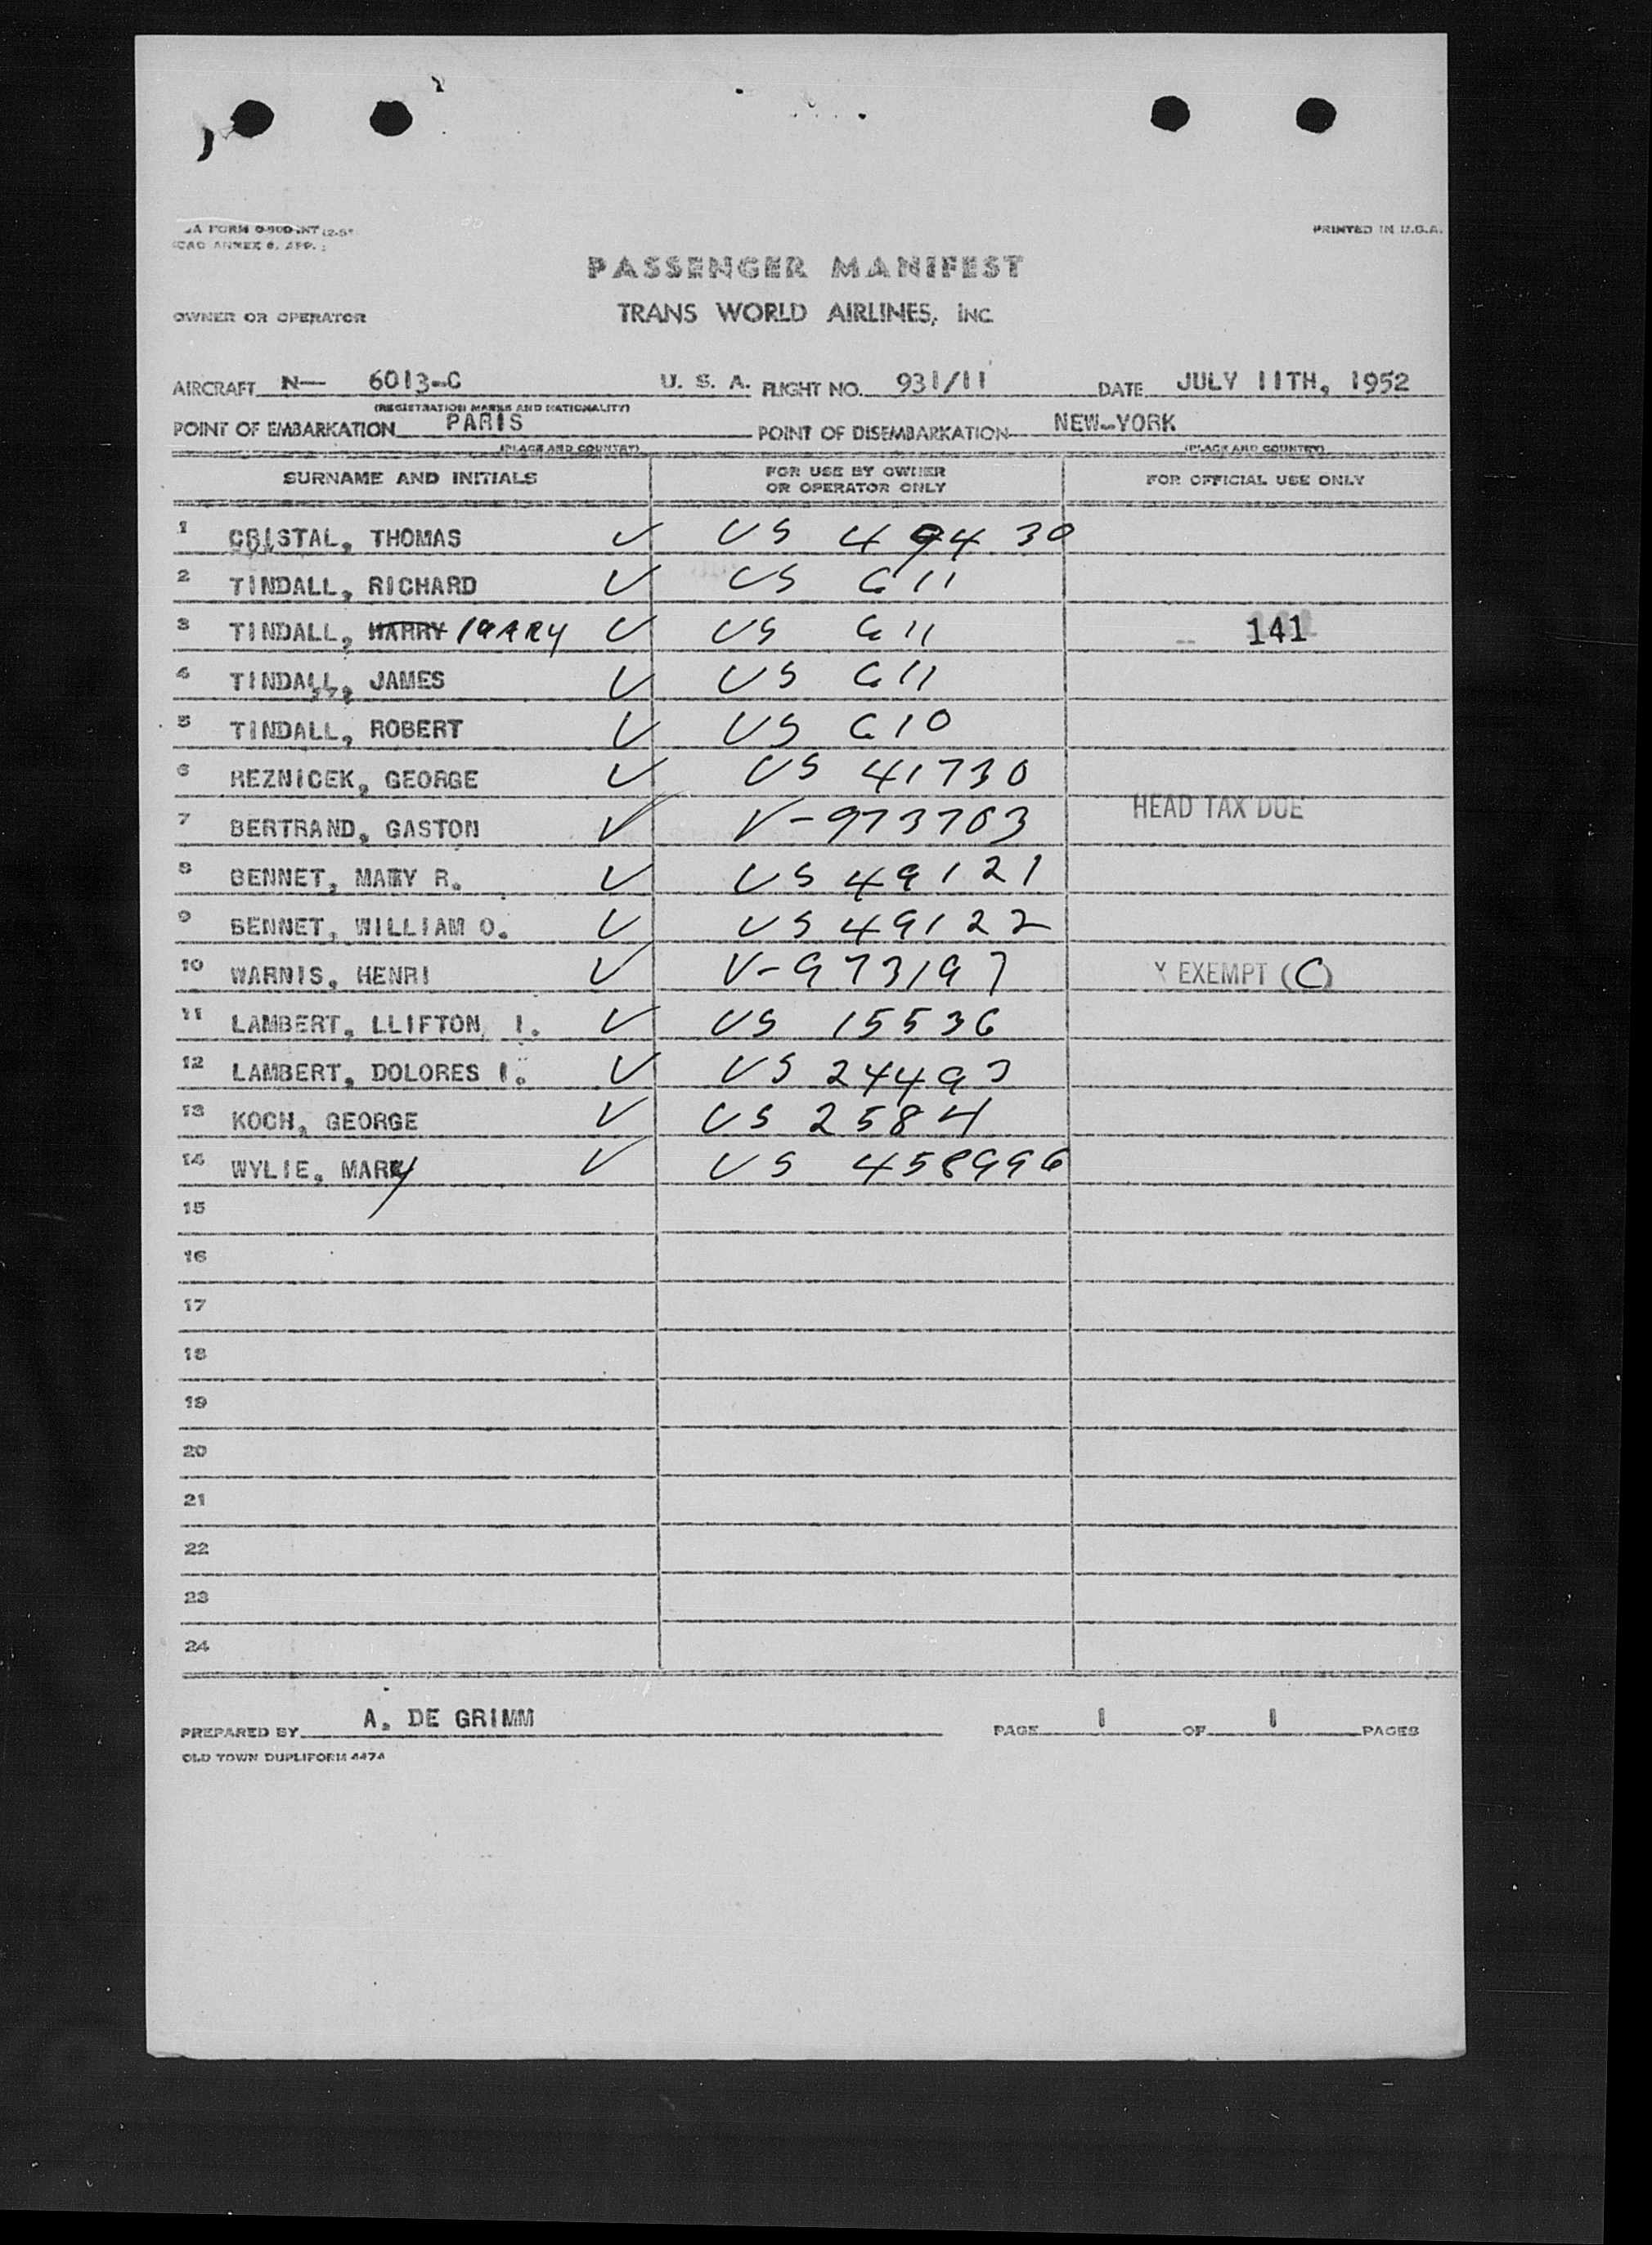 PRINTED IN U.S.A.
PASSENGER MANIFEST
OWNER OR OPERATOR TRANS WORLD AIRLINES, INC.
AIRCRAFT N— 6013-C U. S. A. FLIGHT NO. 931/11 DATE JULY 11TH, 1952
(REGISTRATION MARKS AND NATIONALITY)
POINT OF EMBARKATION PARIS POINT OF DISEMBARKATION NEW-YORK
(PLACE AND COUNTRY) (PLACE AND COUNTRY)
SURNAME AND INITIALS FOR USE BY OWNER OR OPERATOR ONLY FOR OFFICIAL USE ONLY
1 CRISTAL, THOMAS ✓ US 49430
2 TINDALL, RICHARD ✓ US G11
3 TINDALL, HARRY ✓ US G11 141
4 TINDALL, JAMES ✓ US G11
5 TINDALL, ROBERT ✓ US G10
6 REZNICEK, GEORGE ✓ US 41730
7 BERTRAND, GASTON ✓ V-973703 HEAD TAX DUE
8 BENNET, MARY R. ✓ US 49121
9 BENNET, WILLIAM O. ✓ US 49122
10 WARNIS, HENRI ✓ V-973197 X EXEMPT (C)
11 LAMBERT, LLIFTON I. ✓ US 15536
12 LAMBERT, DOLORES I. ✓ US 24493
13 KOCH, GEORGE ✓ US 2584
14 WYLIE, MARY ✓ US 458996
15
16
17
18
19
20
21
22
23
24
PREPARED BY A. DE GRIMM PAGE 1 OF 1 PAGES
OLD TOWN DUPLIFORM 4474